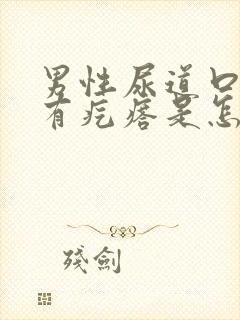 男性尿道口
有疙瘩是怎
殘劍